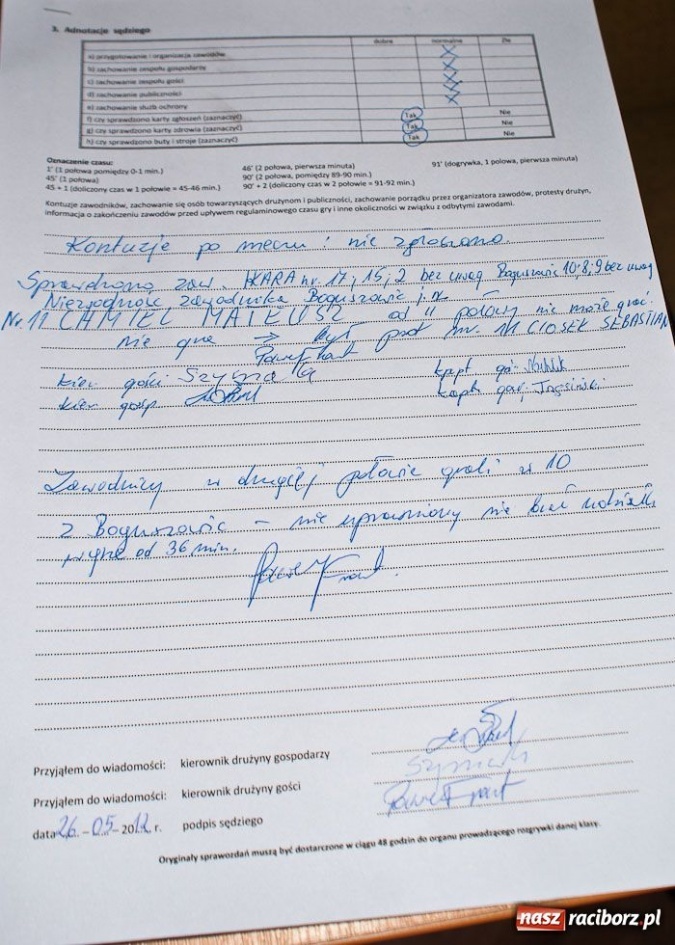 3. Adnotacje sędziego
dobre normalne Złe
a) przygotowanie i organizacja zawodów
b) zachowanie zespołu gospodarzy
c) zachowanie zespołu gości
d) zachowanie publiczności
e) zachowanie służb ochrony
f) czy sprawdzono karty zgłoszeń (zaznaczyć) Tak Nie
g) czy sprawdzono karty zdrowia (zaznaczyć) Tak Nie
h) czy sprawdzono buty i stroje (zaznaczyć) Tak Nie
Oznaczenie czasu:
1' (1 połowa pomiędzy 0-1 min.) 46' (2 połowa, pierwsza minuta) 91' (dogrywka, 1 połowa, pierwsza minuta)
45' (1 połowa) 90' (2 połowa, pomiędzy 89-90 min.)
45 + 1 (doliczony czas w 1 połowie = 45-46 min.) 90' + 2 (doliczony czas w 2 połowie = 91-92 min.)
Kontuzje zawodników, zachowanie się osób towarzyszących drużynom i publiczności, zachowanie porządku przez organizatora zawodów, protesty drużyn,
informacja o zakończeniu zawodów przed upływem regulaminowego czasu gry i inne okoliczności w związku z odbytymi zawodami.
Kontuzje po meczu : nie zgłoszono.
Sprawdzono zaw. nr. 17; 15; 2 bez uwag Boguszowic 10; 8; 9 bez uwag
Niezgodność zawodnika Boguszowic
Nr. 11 CHMIEL MATEUSZ od II połowy nie może grać.
nie gra → był nr. 11 CIOSEK SEBASTIAN
kier gości Szyma kapt
kier gosp kapt
Zawodnicy w drugiej połowie grali w 10
z Boguszowic – nie uprawniony nie brał udziału
w grze od 36 min.
Przyjąłem do wiadomości: kierownik drużyny gospodarzy
Przyjąłem do wiadomości: kierownik drużyny gości
data 26 - 05 - 2012 r. podpis sędziego
Oryginały sprawozdań muszą być dostarczone w ciągu 48 godzin do organu prowadzącego rozgrywki danej klasy.
nasz raciborz.pl